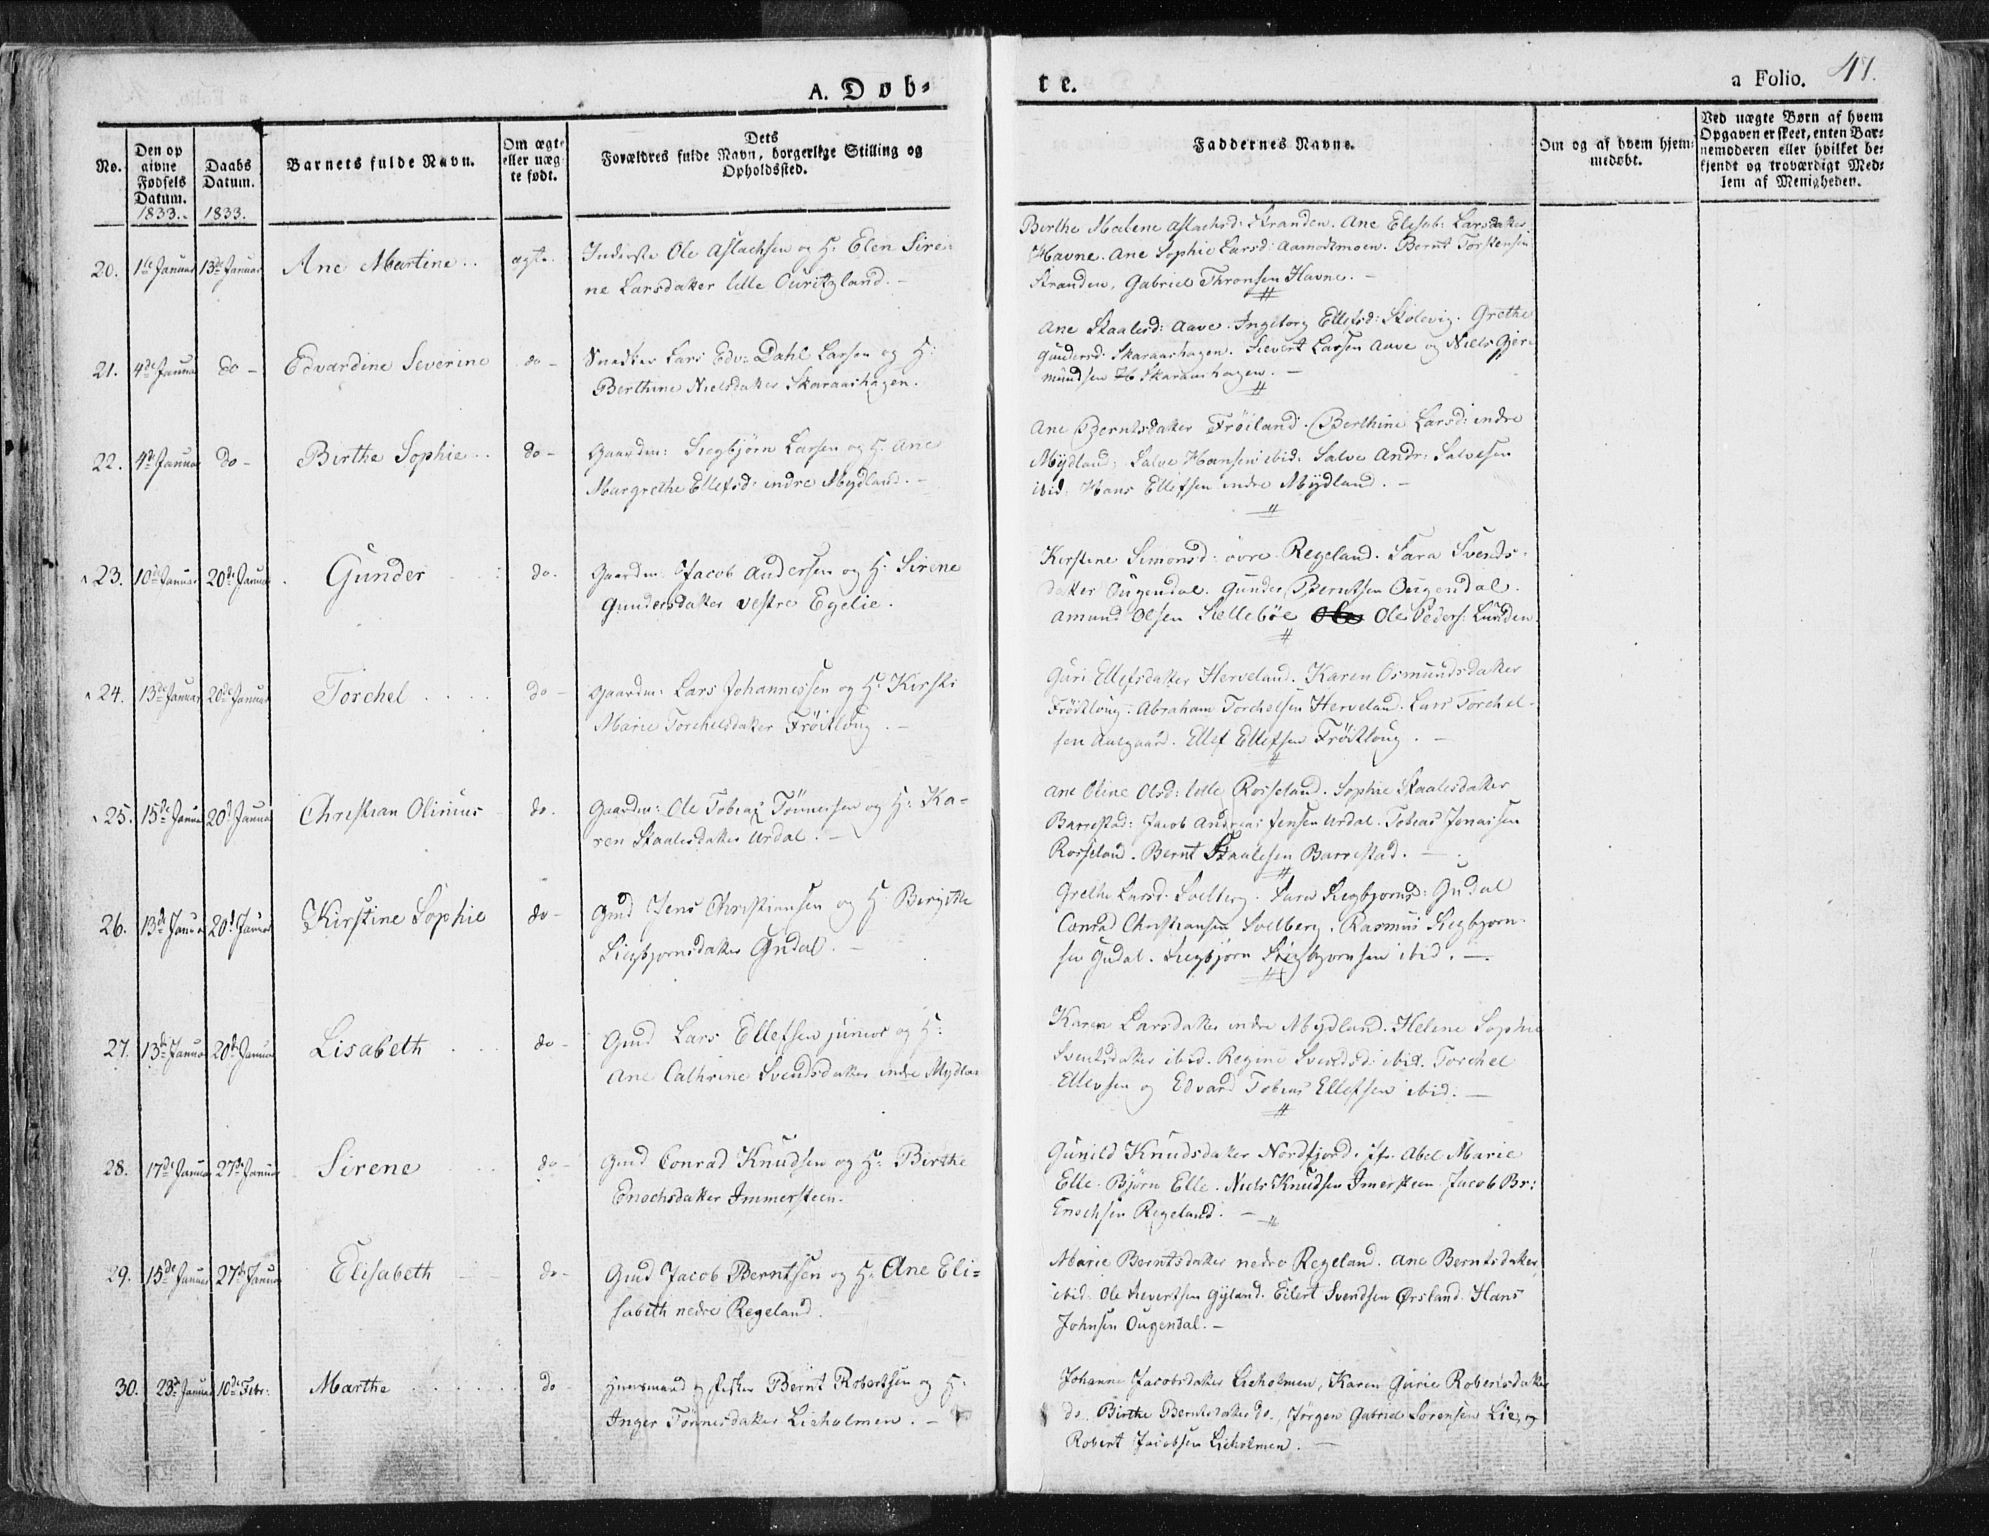 A. Døb-
te.
a Folio. 41.
No.
Den opgivne Fødsels Datum.
1833.
Daabs Datum.
1833.
Barnets fulde Navn.
Om ægte eller uægte født.
Dets
Forældres fulde Navn, borgerlige Stilling og
Opholdssted.
Faddernes Navne.
Om og af hvem hjemmedøbt.
Ved uægte Børn af hvem
Opgaven er skeet, enten Bar-
nemoderen eller hvilket be-
kjendt og troværdigt Med-
lem af Menigheden.
20. 1ste Januar 13de Januar Ane Martine ægte. Inderste Ole Aslachsen og H: Elen Sire-
ne Larsdatter lille Ouritzland.
Berthe Malene Aslachsd: Stranden. Ane Elisab: Larsdatter
Havne. Ane Sophie Larsd: Aamodtmoen. Bernt Torstensen
Stranden, Gabriel Thronsen Havne.
21. 4de Januar do - Edvardine Severine do - Snedker Lars Edv: Dahl Larsen og H:
Berthine Nielsdatter Skaraashagen.
Ane Skaalesd: Aave. Ingeborg Ellefsd: Stolevig. Grethe
Gundersd: Skaraashagen. Sievert Larsen Aave og Niels Gjer-
mundsen Skaraashagen.
22. 4de Januar do - Birthe Sophie do - Gaardm: Siegbjørn Larsen og H: Ane
Margrethe Ellefsd: indre Mydland.
Ane Berntsdatter Frøiland. Berthine Larsd: indre
Mydland. Salve Hansen ibid. Salve Andr: Salvesen
ibid. Hans Ellefsen indre Mydland.
23. 10de Januar 20de Januar Gunder do. Gaardm: Jacob Andersen og H: Sirene
Gundersdatter vestre Egelie.
Kirstine Simonsd: øvre Regeland. Sara Svends-
datter Ougendal. Gunder Berntsen Ougendal.
Amund Olsen Sellebøe Ole Peders: Lunden.
24. 13de Januar 20de Januar Torchel do - Gaardm: Lars Johannessen og H: Kirsti
Marie Torchelsdatter Frøitloug.
Guri Ellefsdatter Herveland. Karen Osmundsdatter
Frøitloug. Abraham Torchelsen Herveland. Lars Torchel-
sen Aalgaard. Ellef Ellefsen Frøitloug.
25. 15de Januar 20de Januar Christian Olinius do. Gaardm: Ole Tobias Tönnessen og H: Ka-
ren Skaalesdatter Urdal.
Ane Oline Olsd: lille Rosseland. Sophie Skaalesdatter
Barrestad: Jacob Andreas Jensen Urdal. Tobias Jonassen
Rosseland. Bernt Skaalesen Barrestad.
26. 13de Januar 20de Januar Kirstine Sophie do - Gmd Jens Christiansen og H: Birgithe
Siegbjørnsdatter Gudal.
Grethe Larsd. Solberg. Sara Siegbjørnsd: Gudal
Conrad Christiansen Solberg. Rasmus Siegbjørn-
sen Gudal. Siegbjørn Siegbjørnsen ibid.
27. 13de Januar 20de Januar Lisabeth do - Gmd Lars Ellefsen junior og H:
Ane Cathrine Svendsdatter indre Mydland
Karen Larsdatter indre Mydland. Helene Sophie
Svendsdatter ibid. Regine Svendsd: ibid. Torchel
Ellevsen og Edvard Tobias Ellefsen ibid.
28. 17de Januar 27de Januar Sirene do - Gmd Conrad Knudsen og H: Birthe
Enochsdatter Immersteen.
Gunild Knudsdatter Nordfjord. Jfr. Abel Marie
Elle. Bjørn Elle. Niels Knudsen Imersteen. Jacob Br:
Enochsen Regeland.
29. 15de Januar 27de Januar Elisabeth do - Gmd Jacob Berntsen og H: Ane Eli-
sabeth nedre Regeland.
Marie Berntsdatter nedre Regeland. Ane Berntsdatter
ibid. Ole Sievertsen Gyland. Eilert Svendsen Ørsland. Hans
Johnsen Ougendal.
30. 23de Januar 10de Febr: Marthe do Huusmand og Fisker Bernt Robertsen og H:
Inger Tönnesdatter Lieholmen.
Johanne Jacobsdatter Lieholmen, Karen Gurie Robertsdatter
do. Birthe Berntsdatter do., Jørgen Gabriel Sørensen Lie, og
Robert Jacobsen Lieholmen.